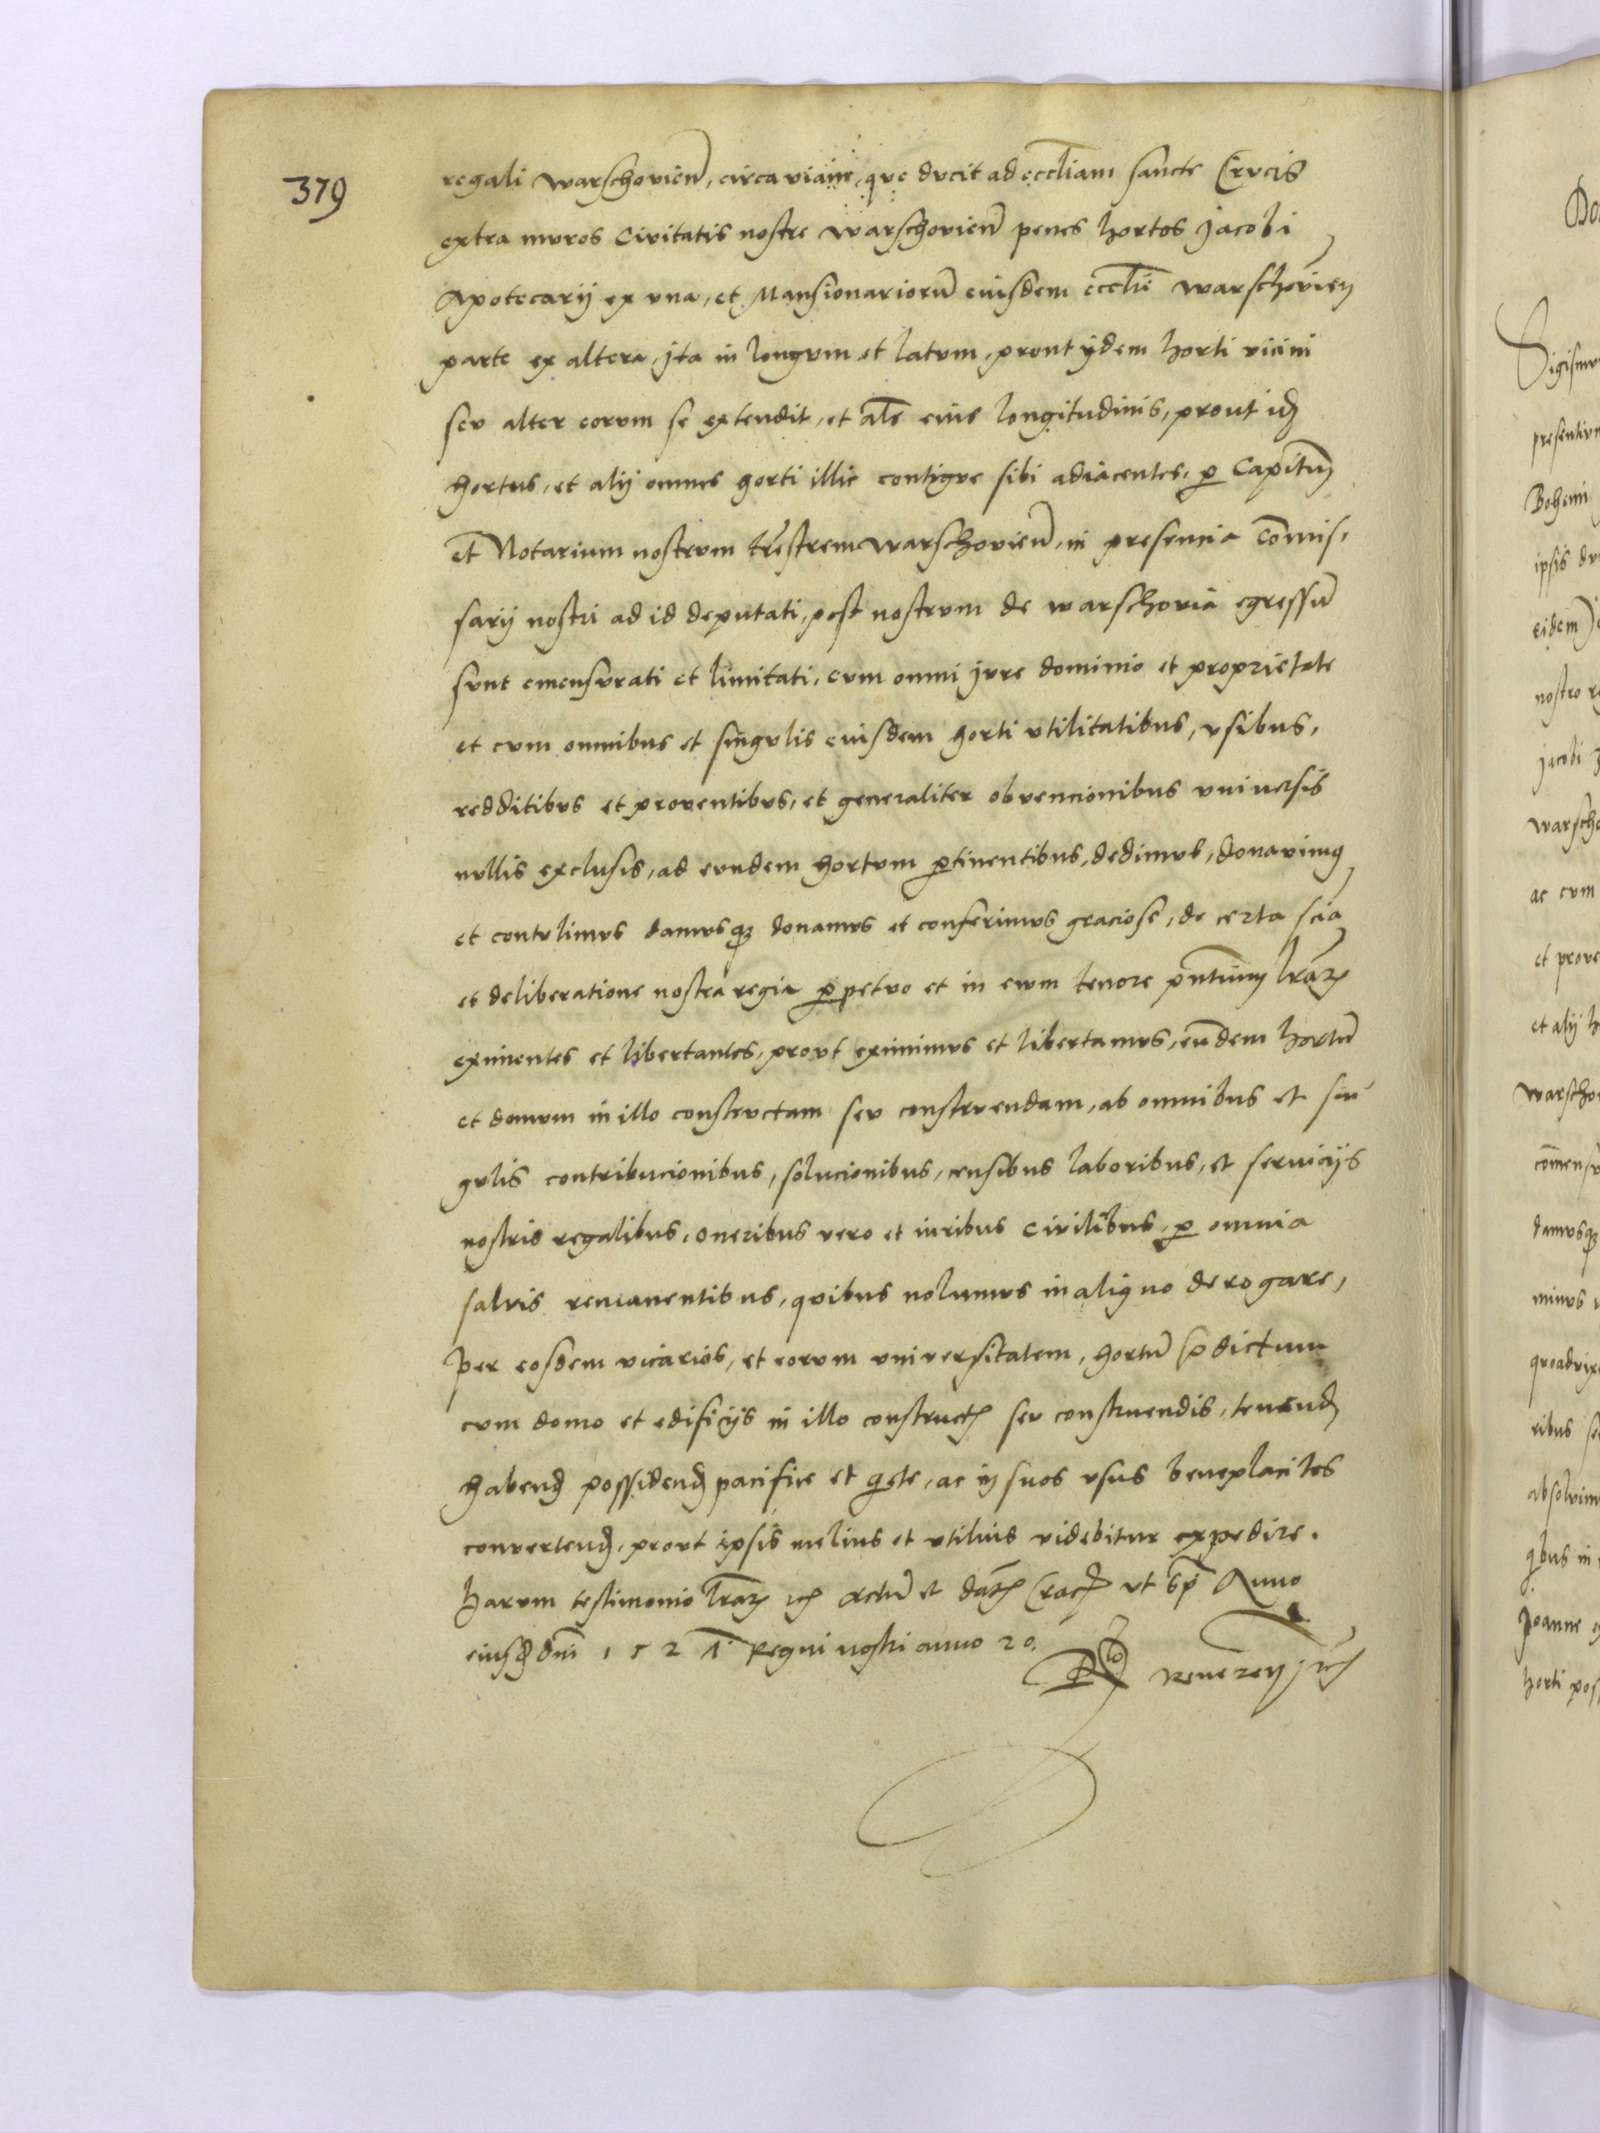 379
regali warschovien, circa viam, que ducit ad eccliam sancte Crucis
extra muros Civitatis nostre warschovien penes hortos Jacobi
Apotecarij ex una, et Mansionarioru eiusdem ecclie warschovien
parte ex altera, jta in longum et latum, prout ijdem horti vicini
seu alter eorum se extendit, et als eius longitudinis, prout id
hortus, et alij omnes horti illic contigue sibi adiacentes, per Capitum
et Notarium nostrum trestrem warschovien, in presencia Comis,
sarij nostri ad id deputati, post nostrum de warschovia egressu
sunt emensurati et limitati, cum omni jure dominio et proprietate
et cum omnibus et singulis eiusdem horti utilitatibus, usibus,
redditibus et proventibus, et generaliter obvencionibus universis
nullis exclusis, ad eundem hortum pertinentibus, dedimus, donavimus
et contulimus damusque donamus et conferimus graciose, de certa scia
et deliberatione nostra regia perpetuo et in evum tenore pntium lrarum
eximentes et libertantes, prout eximimus et libertamus, eundem hortu
et domum in illo constructam seu construendam, ab omnibus et sin
gulis contribucionibus, solucionibus, censibus laboribus, et servicijs
nostris regalibus, oneribus vero et iuribus Civilibus, per omnia
salvis remanentibus, quibus nolumus in aliquo derogare,
per eosdem vicarios, et eorum universitatem, hortu predictum
cum domo et edificijs in illo constructis seu construendis, tenend
habend possidend pacifice et quiete, ac in suos usus beneplacitos
convertend, prout ipsis melius et utilius videbitur expedire.
harum testimonio lrarum etc Actu et datum Crac ut spra Anno
eiusd dni 1521 Regni nostri anno 20.
Bohemi
ipsis
eidem
nostro
Jacobi
ac cum
et alij
damusque
minus
ribus
Joanne
horti